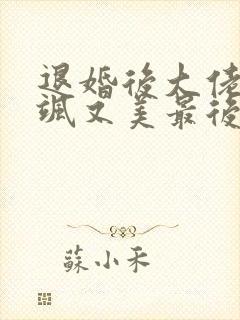 退婚後大佬
颯又美最後
蘇小禾